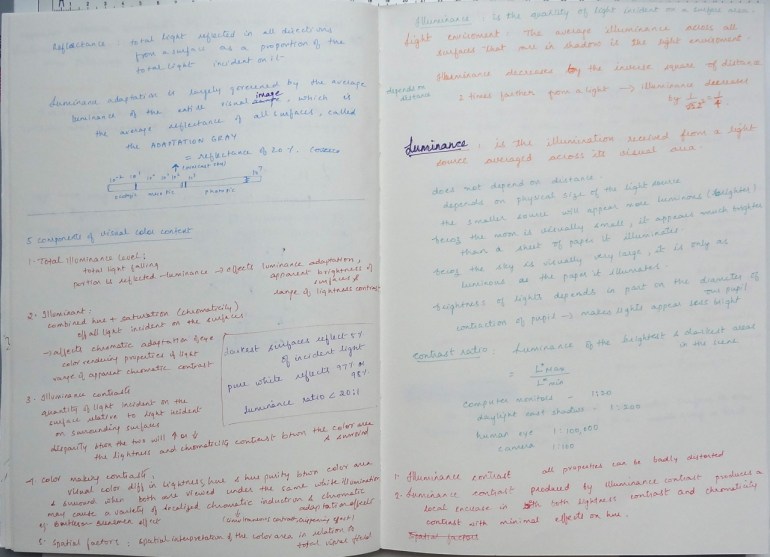 Reflectance : total light reflected in all directions
from a surface as a proportion of the
total light incident on it-
Luminance adaptation is largely governed by the average
luminance of the entire visual image, which is
the average reflectance of all surfaces, called
the ADAPTATION GRAY
= reflectance of 20%.
scotopic mesopic photopic
5 components of visual color context
1. Total Illuminance level;
total light falling
portion is reflected → luminance → affects luminance adaptation,
apparent brightness of
surfaces &
range of lightness contrast
2. Illuminant:
combined hue + saturation (chromaticity)
of all light incident on the surfaces.
→ affects chromatic adaptation of eye
color rendering properties of light
range of apparent chromatic contrast
darkest surfaces reflect 5%
of incident light
pure white reflects 97% or
98%
luminance ratio < 20:1
3. Illuminance contrasts
quantity of light incident on the
surface relative to light incident
on surrounding surfaces
disparity btwn the two will ↑ or ↓
the lightness and chromaticity contrast btwn the color area
& surround
4. Color making contrasts,
visual color diff in lightness, hue & hue purity btwn color area
& surround when both are viewed under the same white illumination
may cause a variety of localized chromatic induction & chromatic
adaptation effects
eg. effect (simultaneous contrast,
5. Spatial factors : spatial interpretation of the color area in relation to
total visual field
Illuminance : is the quantity of light incident on a unique area.
Light enviroment : The average illuminance across all
surfaces that are in shadow is the light enviroment.
depends on
distance
Illuminance decreases by the inverse square of distance
2 times farther from a light → illuminance decreases
by 1/2² = 1/4
Luminance : is the illumination received from a light
source averaged across its visual area.
does not depend on distance.
depends on physical size of the light source
the smaller source will appear more luminous (brighter)
Becoz the moon is visually small, it appears much brighter
than a sheet of paper it illuminates.
Becoz the sky is visually very large, it is only as
luminous as the paper it illuminates.
Brightness of lights depends in part on the diameter of
our pupil
contraction of pupil → makes lights appear less bright
contrast ratio : Luminance of the brightest & darkest areas
in the scene
= L*max
L*min
computer monitors - 1:20
daylight
human eye - 1:100,000
camera 1:100
1. Illuminance contrast all properties can be badly distorted
2. Luminance contrast produced by illuminance contrast produces a
local increase in both lightness contrast and chromaticity
contrast with minimal effects on hue.
Spatial factors